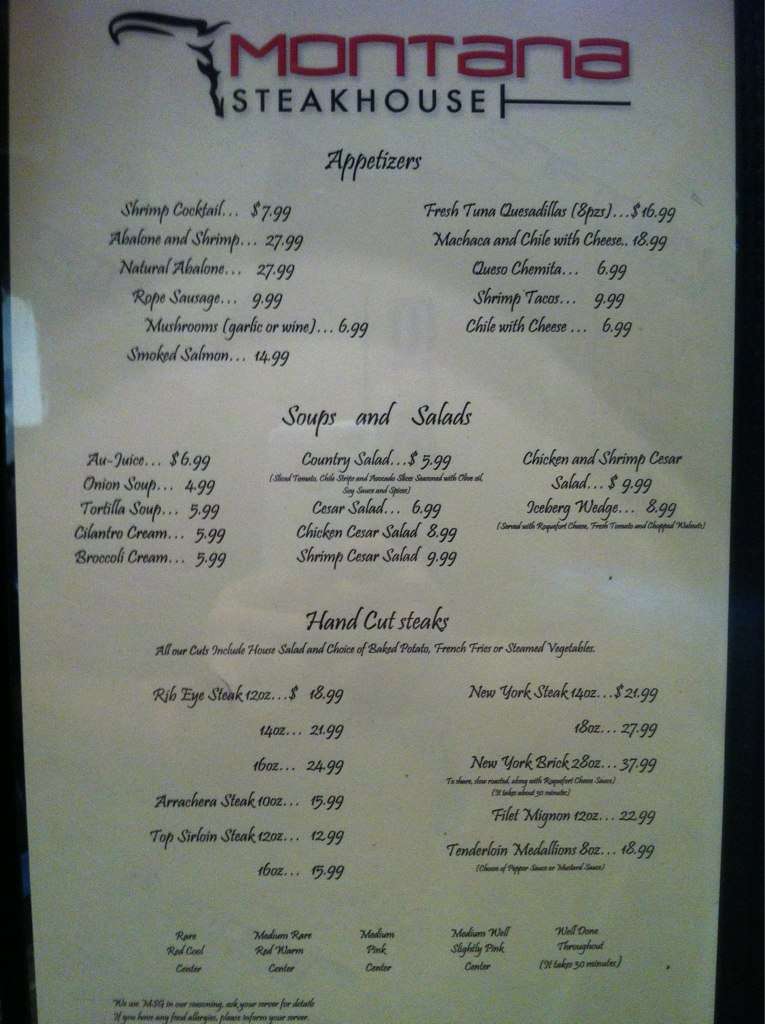 MONTANA
STEAKHOUSE
Appetizers
Shrimp Cocktail... $7.99
Abalone and Shrimp... 27.99
Natural Abalone... 27.99
Rope Sausage... 9.99
Mushrooms (garlic or wine)... 6.99
Smoked Salmon... 14.99
Fresh Tuna Quesadillas (8pzs)...$16.99
Machaca and Chile with Cheese.. 18.99
Queso Chemita... 6.99
Shrimp Tacos... 9.99
Chile with Cheese ... 6.99
Soups and Salads
Au-Juice... $6.99
Onion Soup... 4.99
Tortilla Soup... 5.99
Cilantro Cream... 5.99
Broccoli Cream... 5.99
Country Salad...$ 5.99
(Sliced Tomato, Chile Strips and Avocado Slices Seasoned with Olive oil,
Soy Sauce and Spices)
Cesar Salad... 6.99
Chicken Cesar Salad 8.99
Shrimp Cesar Salad 9.99
Chicken and Shrimp Cesar
Salad...$ 9.99
Iceberg Wedge... 8.99
(Served with Roquefort Cheese, Fresh Tomato and Chopped Walnuts)
Hand Cut steaks
All our Cuts Include House Salad and Choice of Baked Potato, French Fries or Steamed Vegetables.
Rib Eye Steak 12oz...$ 18.99
14oz... 21.99
16oz... 24.99
Arrachera Steak 10oz... 15.99
Top Sirloin Steak 12oz... 12.99
16oz... 15.99
New York Steak 14oz...$ 21.99
18oz... 27.99
New York Brick 28oz... 37.99
To share, slow roasted, along with Roquefort Cheese Sauce)
(It takes about 30 minutes)
Filet Mignon 12oz... 22.99
Tenderloin Medallions 8oz... 18.99
(Choose of Pepper Sauce or Mustard Sauce)
Rare
Red Cool
Center
Medium Rare
Red Warm
Center
Medium
Pink
Center
Medium Well
Slightly Pink
Center
Well Done
Throughout
(It takes 30 minutes)
We use MSG in our seasoning, ask your server for details
If you have any food allergies, please inform your server.